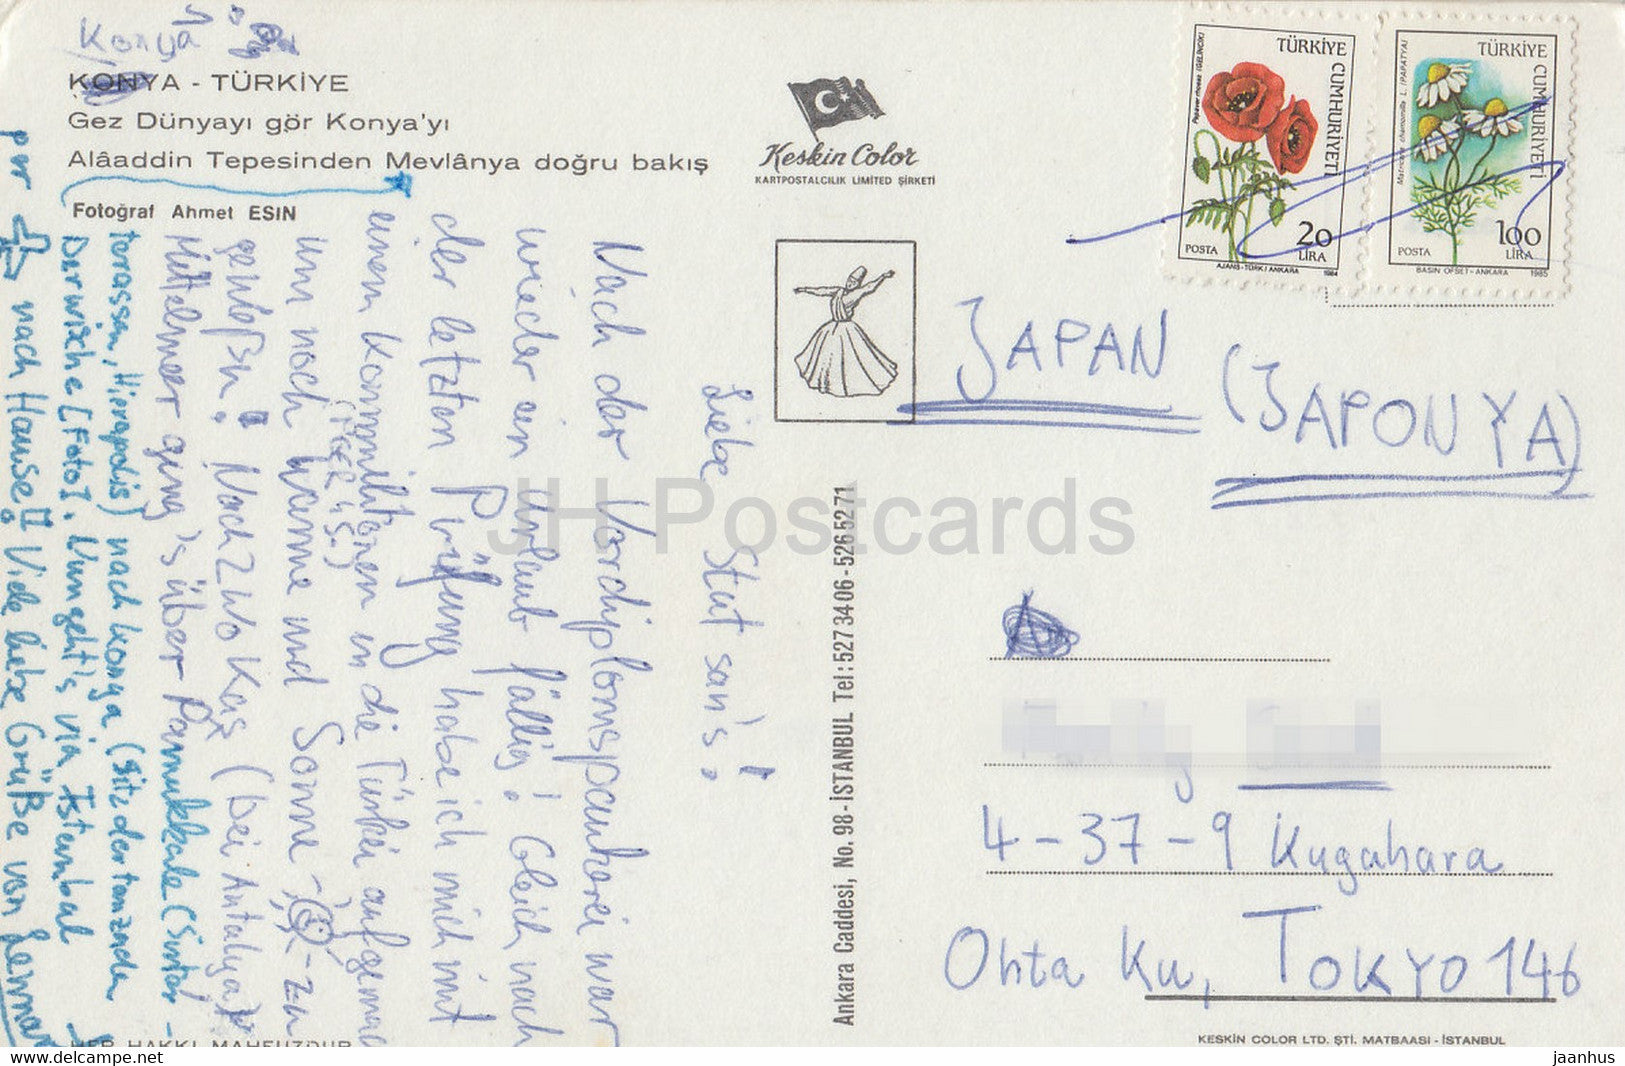 Konya
KONYA - TÜRKİYE
Gez Dünyayı gör Konya'yı
Alâaddin Tepesinden Mevlânya doğru bakış
Fotoğraf Ahmet ESIN
Keskin Color
KARTPOSTALCILIK LIMITED ŞİRKETİ
Papaver rhoeas (GELİNCİK)
TÜRKİYE CUMHURİYETİ
POSTA
20 LİRA
AJANS-TÜRK / ANKARA 1984
Matricaria chamomilla L. (PAPATYA)
TÜRKİYE CUMHURİYETİ
POSTA
100 LİRA
BASIN OFSET - ANKARA 1985
Liebe Stut san's!
Nach der Vordiplomspaukerei war
wieder ein Urlaub fällig! Gleich nach
der letzten Prüfung habe ich mich mit
einem Kommilitonen in die Türkei aufgemacht
um noch Wärme und Sonne zu
genießen. Nach 2 Wo Kaş (bei Antalya)
Mittelmeer ging's über Pamukkale (Sinter-
terassen, Hierapolis) nach Konya (Sitz der tanzenden
Derwische [Foto]. Nun geht's via Istanbul
per nach Hause! Viele liebe Grüße von Lennart
JAPAN
(JAPONYA)
4-37-9 Kugahara
Ohta Ku, TOKYO 146
Ankara Caddesi, No. 98 - İSTANBUL Tel: 527 34 06 - 526 52 71
HER HAKKI MAHFUZDUR
KESKIN COLOR LTD. ŞTİ. MATBAASI - İSTANBUL
JH Postcards
www.delcampe.net
jaanhus